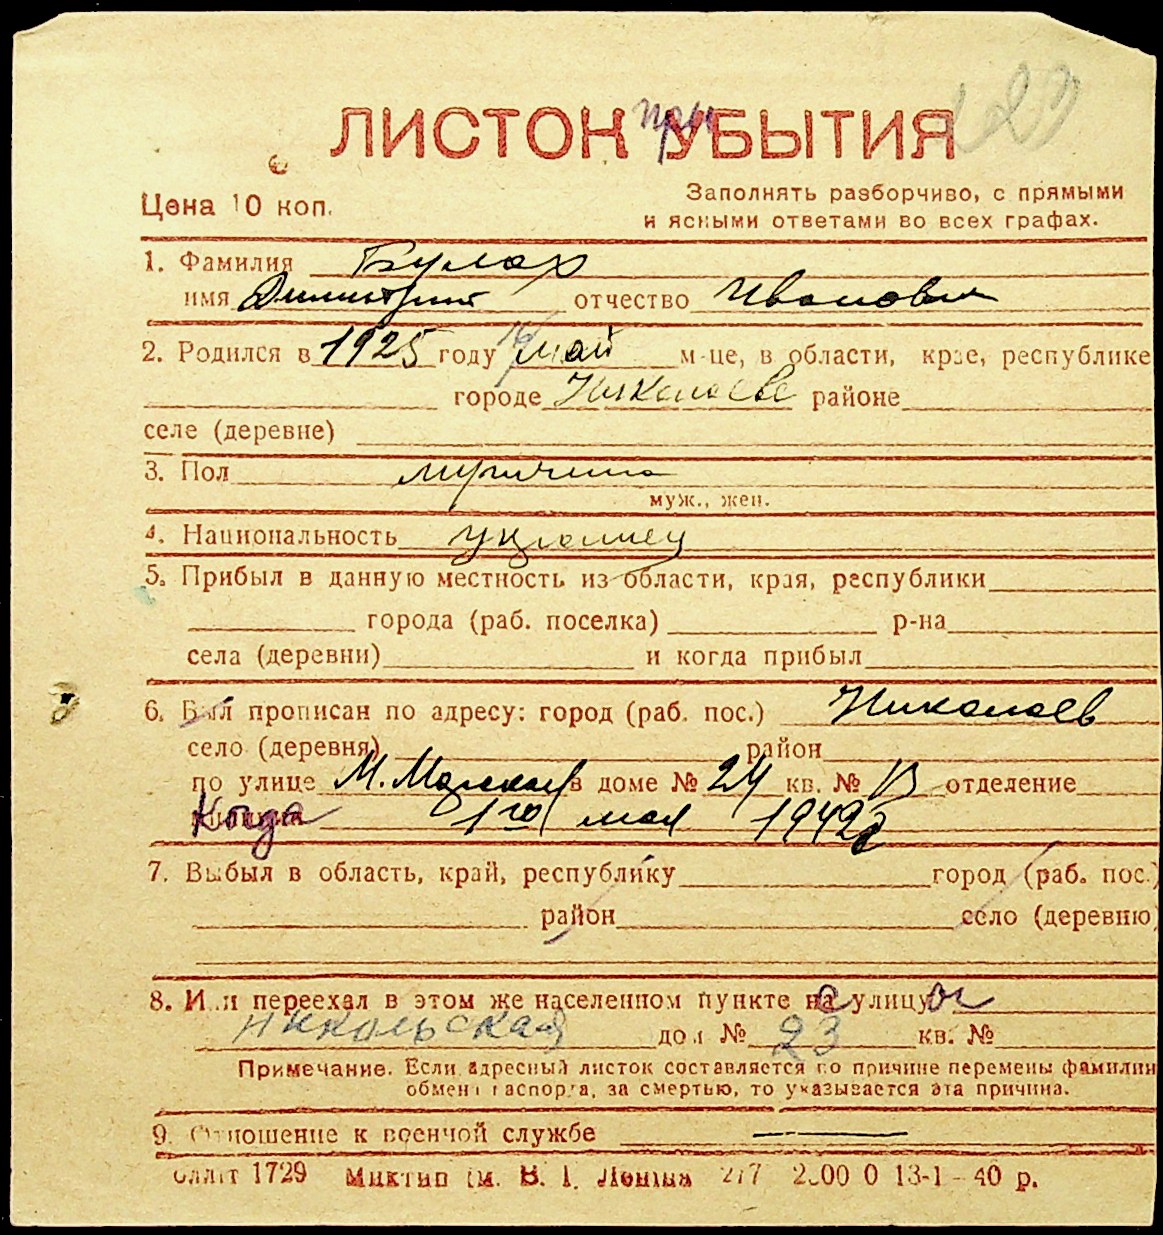 при
ЛИСТОК УБЫТИЯ
Цена 10 коп.
Заполнять разборчиво, с прямыми
и ясными ответами во всех графах.
1. Фамилия Булах
имя Димитрий отчество Иванович
2. Родился в 1925 году 16 май м-це, в области, крае, республике
городе Николаеве районе
селе (деревне)
3. Пол мужчина
муж., жен.
4. Национальность украинец
5. Прибыл в данную местность из области, края, республики
города (раб. поселка) р-на
села (деревни) и когда прибыл
6. Был прописан по адресу: город (раб. пос.) Николаев
село (деревня) район
по улице М. Морская в доме № 24 кв. № отделение
Когда 1го мая 1942
7. Выбыл в область, край, республику город (раб. пос.)
район село (деревню)
8. Или переехал в этом же населенном пункте на улицу
Никольская дом № 23 кв. №
Примечание. Если адресный листок составляется по причине перемены фамилии
обмена паспорта, за смертью, то указывается эта причина.
9. Отношение к военной службе
1729 им. В. І. Леніна 277 13-1-40 р.